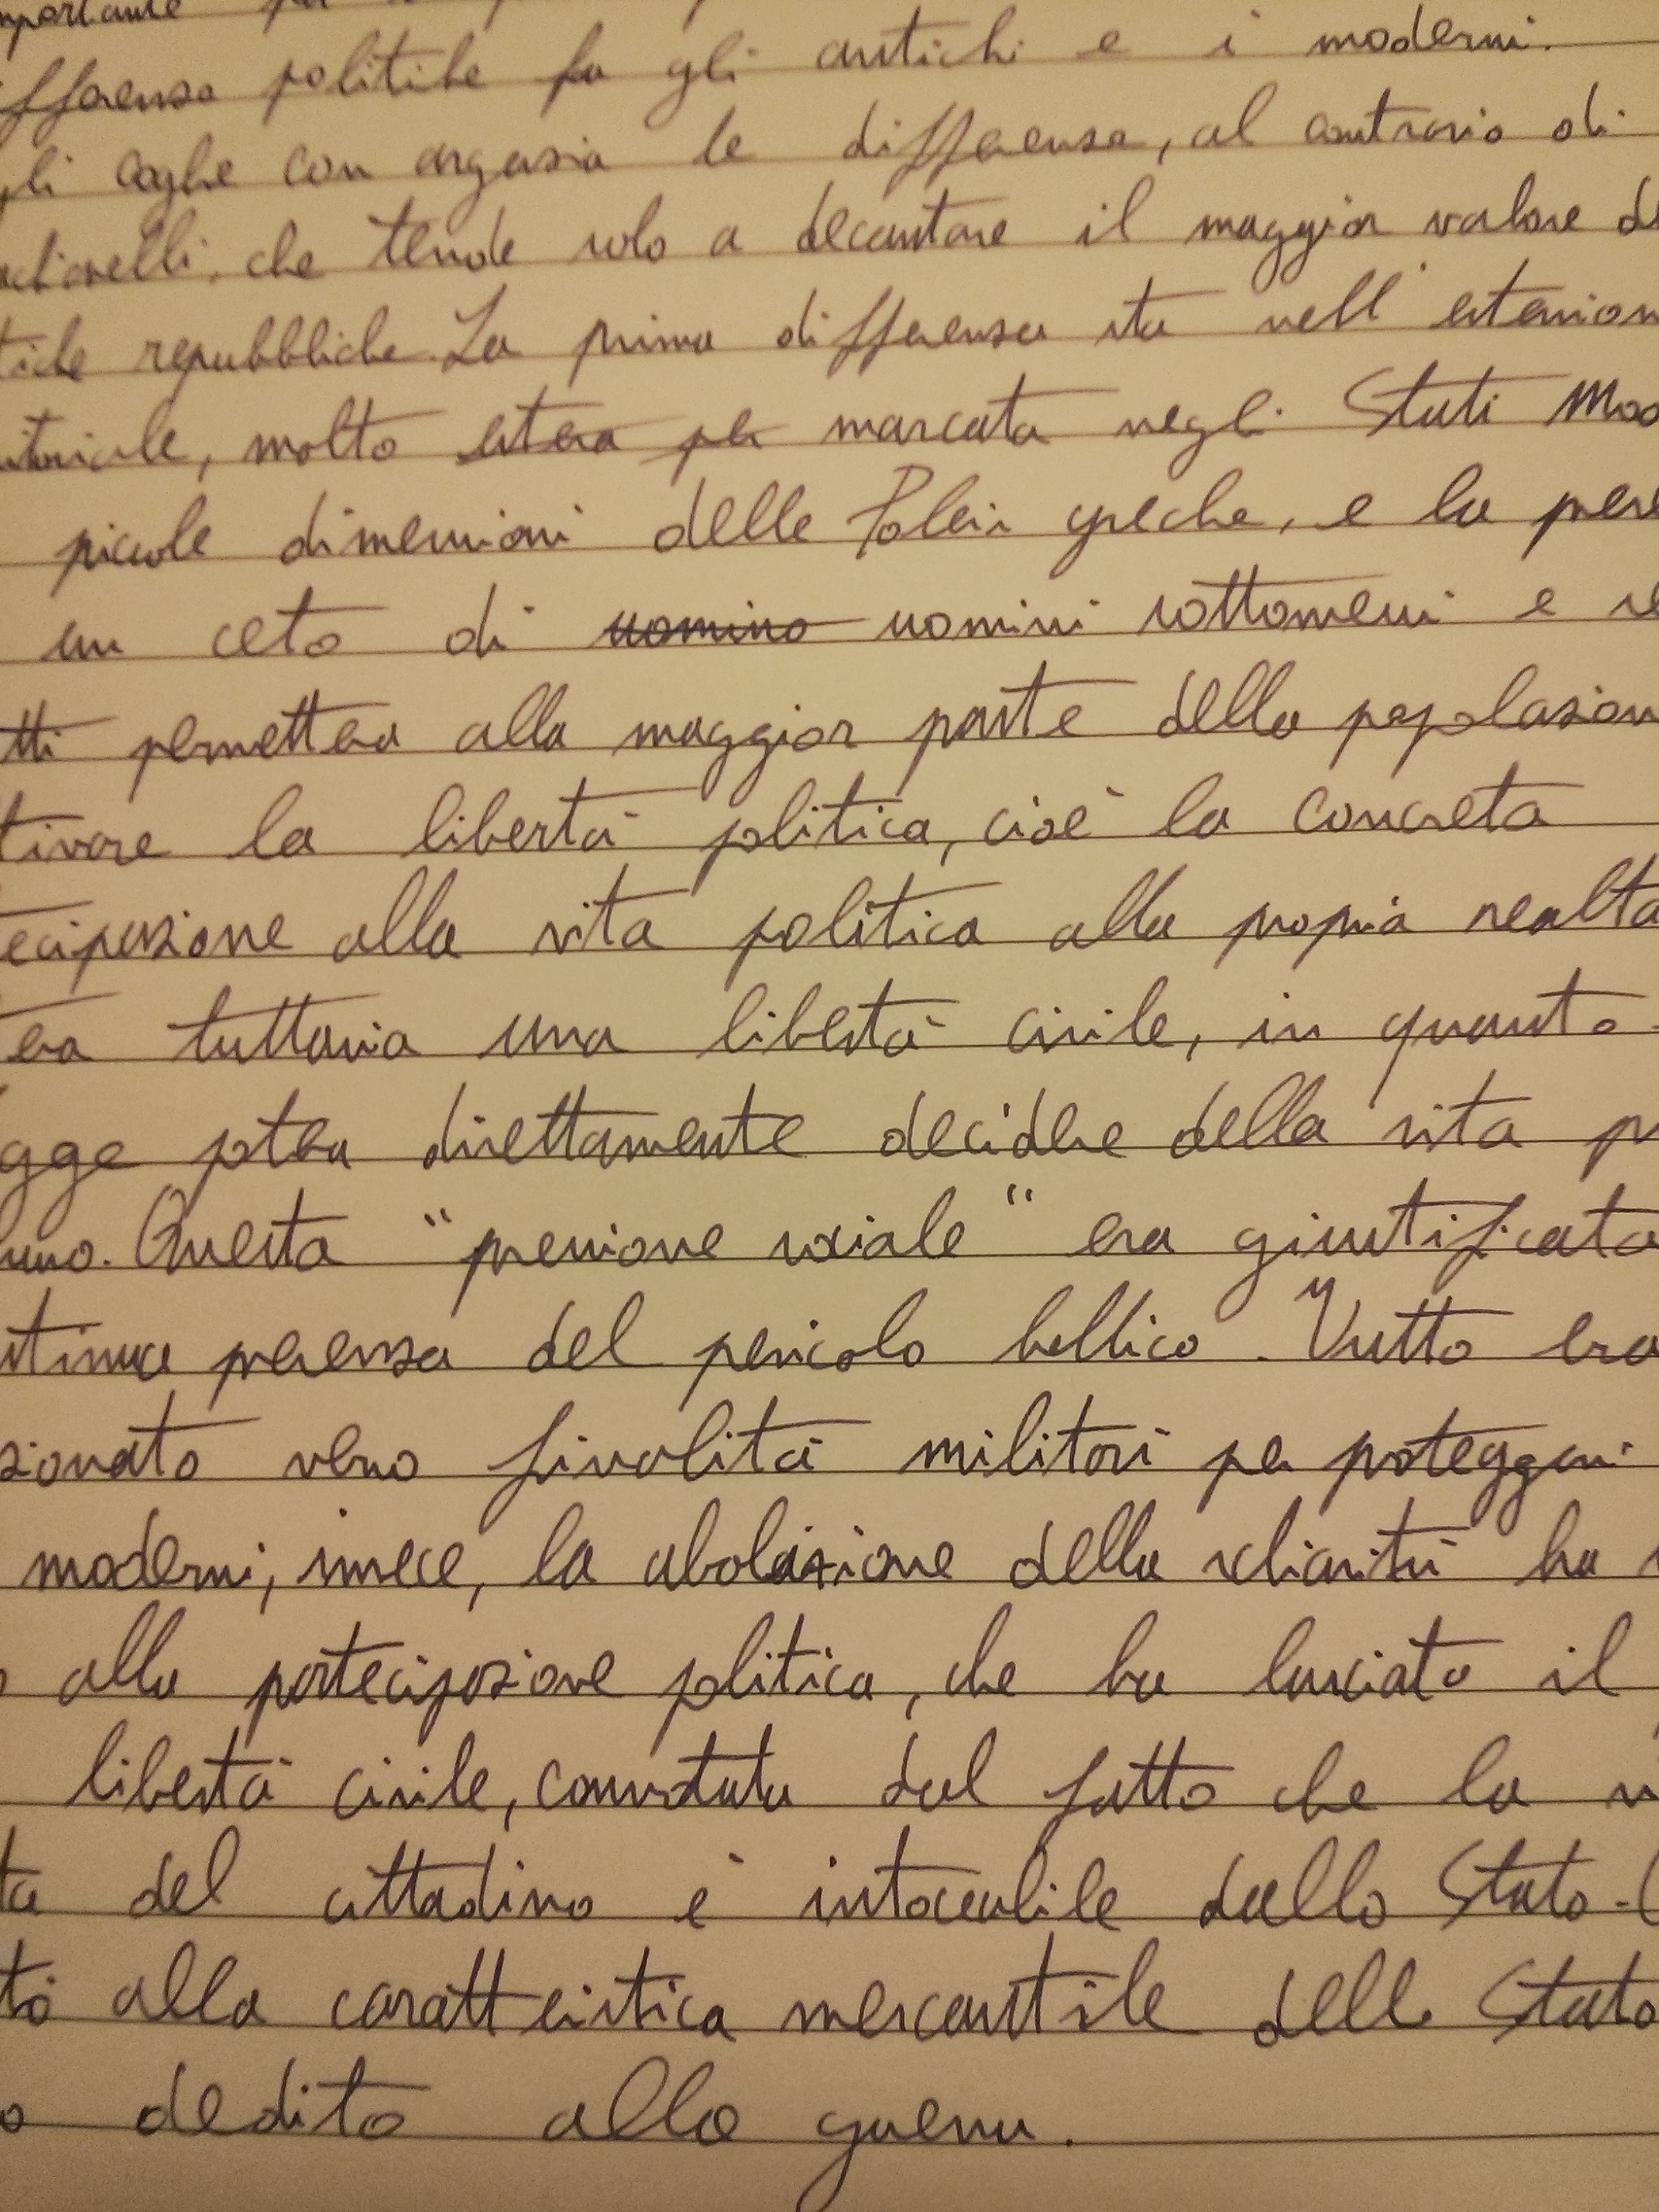 importante per
fferenza politiche fra gli antichi e i moderni.
gli coglie con arguzia le differenze, al contrario di
achiavelli, che tende solo a decantare il maggior valore de
tiche repubbliche. La prima differenza sta nell'estension
itoriale, molto estesa per marcata negli Stati Mod
piccole dimensioni delle Poleis greche, e la pres
un ceto di uomino uomini sottomessi e re
tti permetteva alla maggior parte della popolazion
tivare la libertà politica, cioè la concreta
tecipazione alla vita politica alla propria realtà
era tuttavia una libertà civile, in quanto
gge potea direttamente decidere della vita pr
uno. Questa "pressione sociale" era giustificata
ntinua presenza del pericolo bellico. Tutto era
zionato verso finalità militari per proteggersi
moderni, invece, la abolizione della schiavitù ha
alla partecipazione politica, che ha lasciato il
libertà civile, constatata dal fatto che la vi
ta del cittadino è intoccabile dallo Stato. (
to alla caratteristica mercantile dello Stato
o dedito alla guerra.